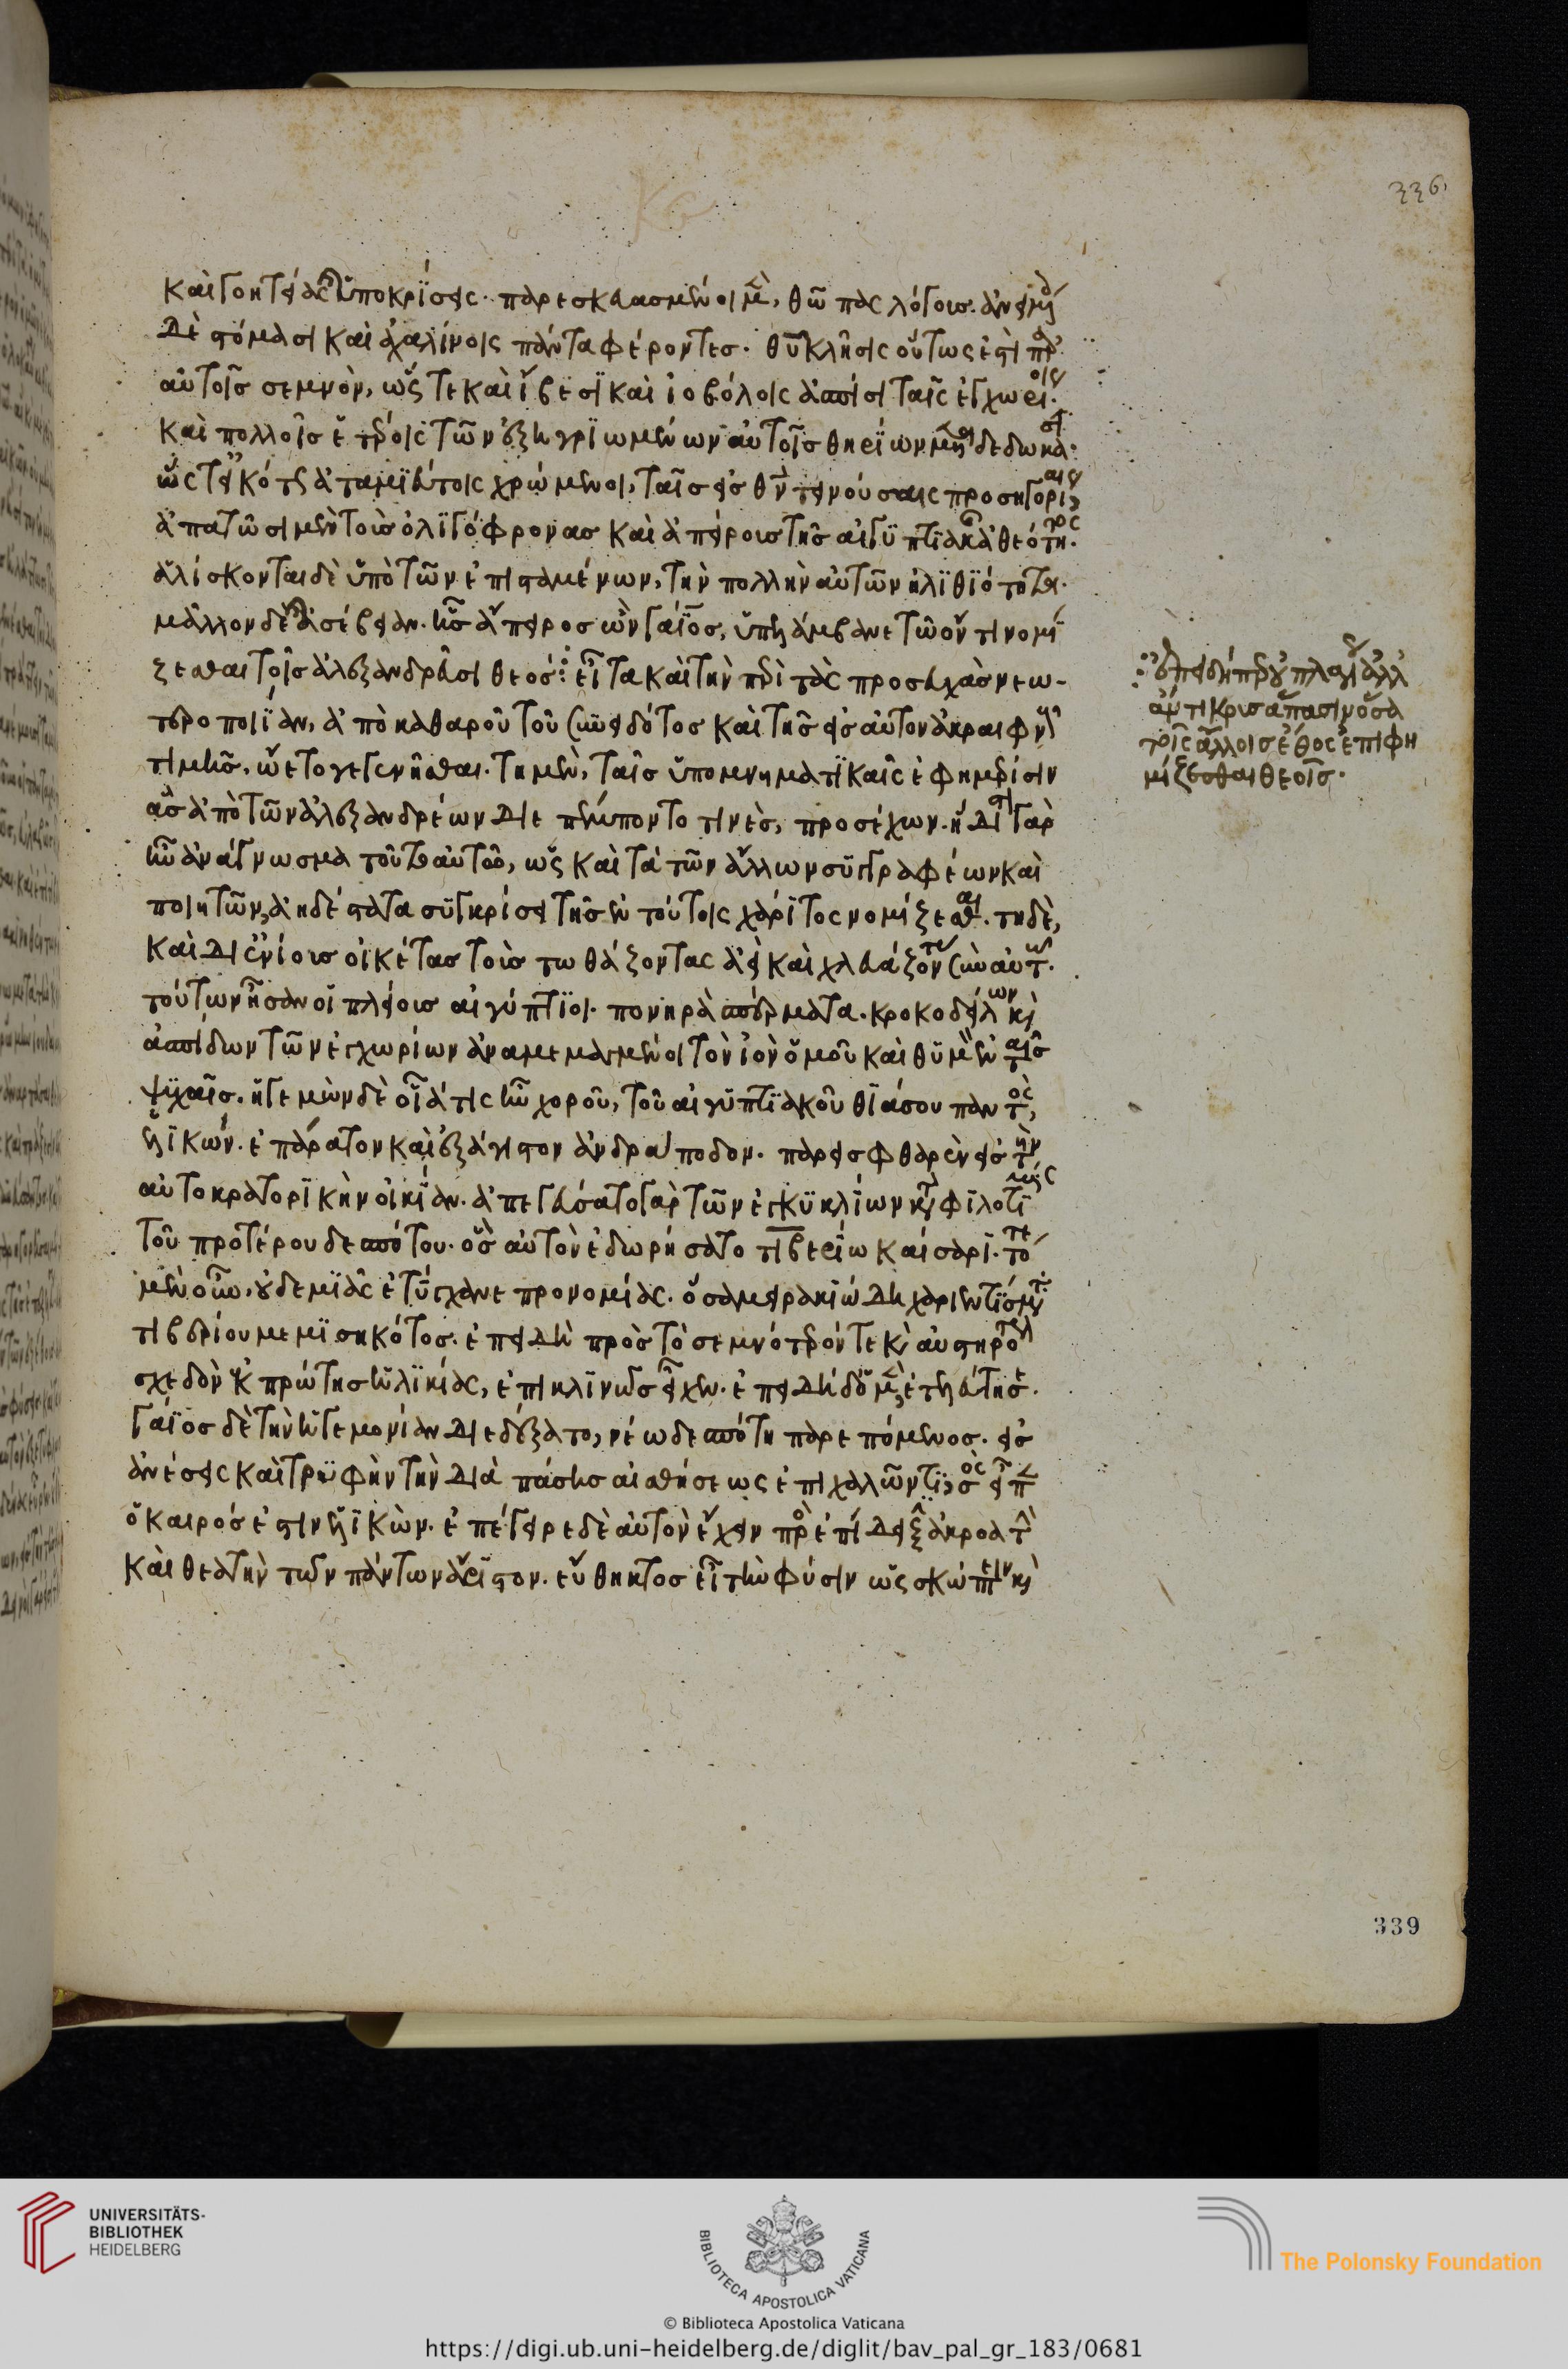 336
καὶ γοητείας καὶ ὑποκρίσεις· παρεσκευασμένοι μὲν, θῶπας λόγους· ἀνειμένοις
δὲ στόμασι καὶ ἀχαλίνοις πάντα φέροντες· θεοῦ κλῆσις οὕτως ἐστὶ παρ'
αὐτοῖς σεμνὸν, ὥστε καὶ ἴβεσι καὶ ἰοβόλοις ἀσπίσι ταῖς ἐγχωρίοις·
καὶ πολλοῖς ἑτέροις τῶν ἐξηγριωμένων αὐτοῖς θηρίων μεταδεδώκασι·
ὥστ' εἰκότως ἀταμιεύτοις χρώμενοι, ταῖς εἰς θεὸν τεινούσαις προσηγορίαις
ἀπατῶσι μὲν τοὺς ὀλιγόφρονας καὶ ἀπείρους τῆς αἰγυπτιακῆς ἀθεότητος·
ἁλίσκονται δὲ ὑπὸ τῶν ἐπισταμένων, τὴν πολλὴν αὐτῶν ἠλιθιότητα·
μᾶλλον δὲ ἀσέβειαν· ἧς ἄπειρος ὢν γάϊος, ὑπελάμβανε τῷ ὄντι νομί
ζεσθαι τοῖς ἀλεξανδρεῦσι θεός: εἶτα καὶ τὴν περὶ τὰς προσευχὰς νεω-
τεροποιΐαν, ἀπὸ καθαροῦ τοῦ συνειδότος καὶ τῆς εἰς αὐτὸν ἀκραιφνοῦς
τιμῆς, ᾤετο γεγενῆσθαι· τῇ μὲν, ταῖς ὑπομνηματικαῖς ἐφημερίσιν
ἃς ἀπὸ τῶν ἀλεξανδρέων διεπέμποντο τινὲς, προσέχων· ἥδιστον γὰρ
ἦν ἀνάγνωσμα τοῦτο αὐτῷ, ὡς καὶ τὰ τῶν ἄλλων συγγραφέων καὶ
ποιητῶν, ἀηδέστατα συγκρίσει τῆς ἐν τούτοις χάριτος νομίζεσθαι· τῇ δὲ,
καὶ δι' ἐνίους οἰκέτας τοὺς τωθάζοντας ἀεὶ καὶ χλευάζοντας σὺν αὐτῷ·
τούτων ἦσαν οἱ πλείους αἰγύπτιοι· πονηρὰ σπέρματα· κροκοδείλων καὶ
ἀσπίδων τῶν ἐγχωρίων ἀναμεμαγμένοι τὸν ἰὸν ὁμοῦ καὶ θυμὸν ἐν ταῖς
ψυχαῖς· ἡγεμὼν δὲ οἷά τις ἦν χοροῦ, τοῦ αἰγυπτιακοῦ θιάσου παντὸς,
ἑλικών· ἐπάρατον καὶ ἐξάγιστον ἀνδράποδον· παρεισφθαρὲν εἰς τὴν
αὐτοκρατορικὴν οἰκίαν· ἀπεγεύσατο γὰρ τῶν ἐγκυκλίων κατὰ φιλοτιμίαν
τοῦ προτέρου δεσπότου· ὃς αὐτὸν ἐδωρήσατο τιβερίῳ καίσαρι· τότε
μὲν οὖν, οὐδεμιᾶς ἐτύγχανε προνομίας· ὅσα μειρακιώδη χαριεντισμὸν
τιβερίου μεμισηκότος· ἐπειδὴ πρὸς τὸ σεμνότερόν τε καὶ αὐστηρότερον
σχεδὸν ἐκ πρώτης ἡλικίας, ἐπικλινῶς εἶχεν· ἐπειδὴ δ' ὁ μὲν ἐτελεύτησε·
γάϊος δὲ τὴν ἡγεμονίαν διεδέξατο, νέῳ δεσπότῃ παρεπόμενος· εἰς
ἀνέσεις καὶ τρυφὴν τὴν διὰ πάσης αἰσθήσεως ἐπιχαλῶντι, ὃς εἶπε
ὁ καιρός ἐστιν ἑλικών· ἐπέγειρε δὲ αὐτὸν ἔχειν πρὸς ἐπίδειξιν ἀκροατὴν
καὶ θεατὴν τῶν πάντων ἄριστον· εὔθικτος εἶ τὴν φύσιν ὡς σκώπτειν καὶ
ἐπειδήπερ οὐ πλαγίως ἀλλ'
ἄντικρυς ἅπασιν ὅσα
τοῖς ἄλλοις ἔθος ἐπιφη
μίζεσθαι θεοῖς·
339
UNIVERSITÄTS-
BIBLIOTHEK
HEIDELBERG
BIBLIOTECA APOSTOLICA VATICANA
The Polonsky Foundation
© Biblioteca Apostolica Vaticana
https://digi.ub.uni-heidelberg.de/diglit/bav_pal_gr_183/0681